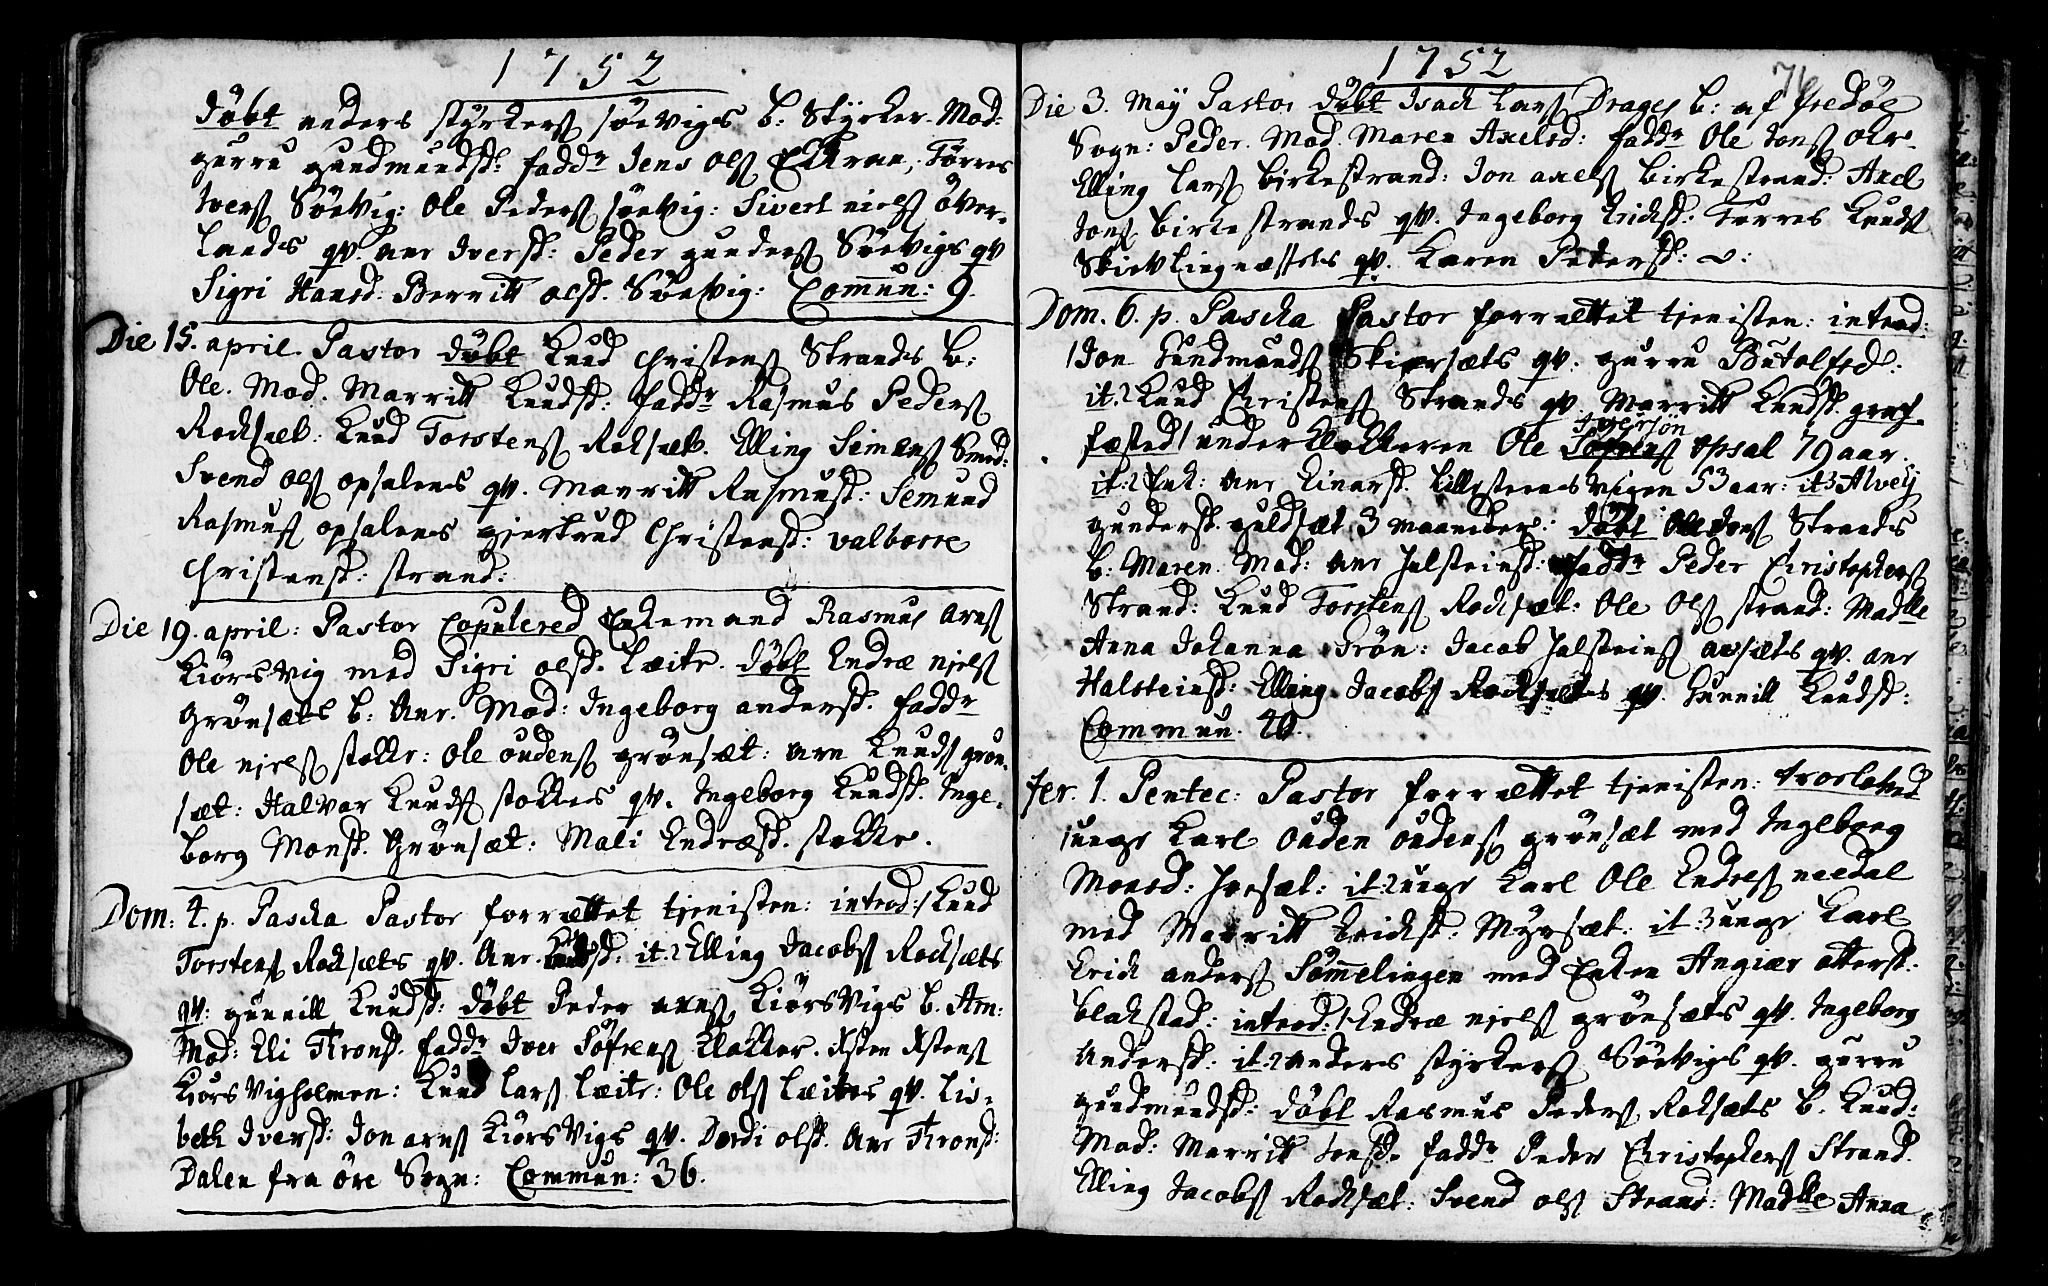 1752
döbt anders styrkers Söevigs b: Styrker. Mod:
gurru gundmundsd: fadd^r Jens Ols Eckran, Torres
Ivers Söevig: Ole Peders söevig: Sivert niels över-
lands qv. anr Iversd: Peder gunders Söevigs qv
Sigri Hansd: Berritt olsd. Söevig: Commun: 9.
Die 15. april Pastor döbt Knud christens Strands b:
Ole. Mod. Marritt Knudsd: fadd^r Rasmus Peders
Rocksæt: Knud Torstens Roksæt. Elling Simens Smed:
Svend ols opsalens qv. Marritt Rasmusd: Semund
Rasmus opsalens gjertrud Christensd: valborre
christensd: strand:
Die 19. april: Pastor Copulered Enkemand Rasmus arns
Kiörsvig med Sigri olsd. Læite. döbt Endræ njels
grönsæts b: Anr. Mod: Ingeborg andersd. fadd^r
Ole njels stokke: Ole oudens grönsæt: arn Knuds grön-
sæt: Halvar Knuds stokkes qv. Ingeborg Knudsd. Inge-
borg Monsd. Grönsæt: Mali Endræsd. stokke.
Dom: 4. p. Pascha Pastor forrættet tjenisten: introd:/ Knud
Torstens Rocksæts qv. Anr. it. 2 Elling Jacobs Rocksæts
qv: gunnill Knudsd: döbt Peder arns Kiörsvigs b. Arn:
Mod: Eli Tronsd. fadd^r Iver Söfrens klokker. Asten Astens
Kiörsvigholmen: Knud Lars Læite: Ole ols Læites qv. Lis-
beth Iversd: Jon arns Kiörsvigs qv. Dordi olsd. Anr Tronsd:
Dalen fra öre Sogn: Commun: 36.
1752
76
Die 3. May Pastor döbt Isach Lars Drages b: af fredöe
Sogn: Peder. Mod. Maren Axelsd: fadd^r Ole Jons
Elling Lars birkestrand: Jon axels birkestrand: Axel
Jons birkestrands qv. Ingeborg Ericksd: Torres Knuds
Skievlingnæssets qv. Karen Pedersd:
Dom. 6. p. Pascha Pastor forrættet tjenisten: introd:
1 Jon Gundmunds Skiersæts qv: gurru Butolfsd:
it. 2 Knud Christens Strands qv. Marritt Knudsd. graf-
fæsted/ underklokkeren Ole Iversön opsal 79 aar.
it. 2 Enk: anr Einarsd. Lillesteensvigen 53 aar: it 3 Alvey
gundersd. guldsæt 3 maaneder: döbt Ole Jons Strands
b: Maren. Mod: anr Halsteinsd: fadd^r Peder Christophers
Strand: Knud Torstens Rocksæt: Ole Ols strand: Madlle
Anna Johanna Frön: Jacob Halsteins aasæts qv. anr
Halsteinsd: Elling Jacobs Rocksæts qv. Gunnill Knudsd:
Commun. 40.
fer. 1. Pentec: Pastor forrættet tjenisten: trorlofved
1 unge Karl Ouden Oudens grönsæt med Ingeborg
Monsd: it 2 unge Karl Ole Endres needal
med Marritt Ericksd: Myrsæt: it 3 unge Karl
Erick anders Sömmelingen med Enken Angiær ottersd:
blakstad: introd:/ Endræ njels grönsæts qv. Ingeborg
Andersd: it. 2 anders styrkers Söevigs qv. gurru
gundmundsd: döbt Rasmus Peders. Roksæts b. Knud:
Mod: Marritt Jonsd. fadd^r Peder Christophers Strand.
Elling Jacobs Rocksæt: Svend ols Strand: Madlle Anna